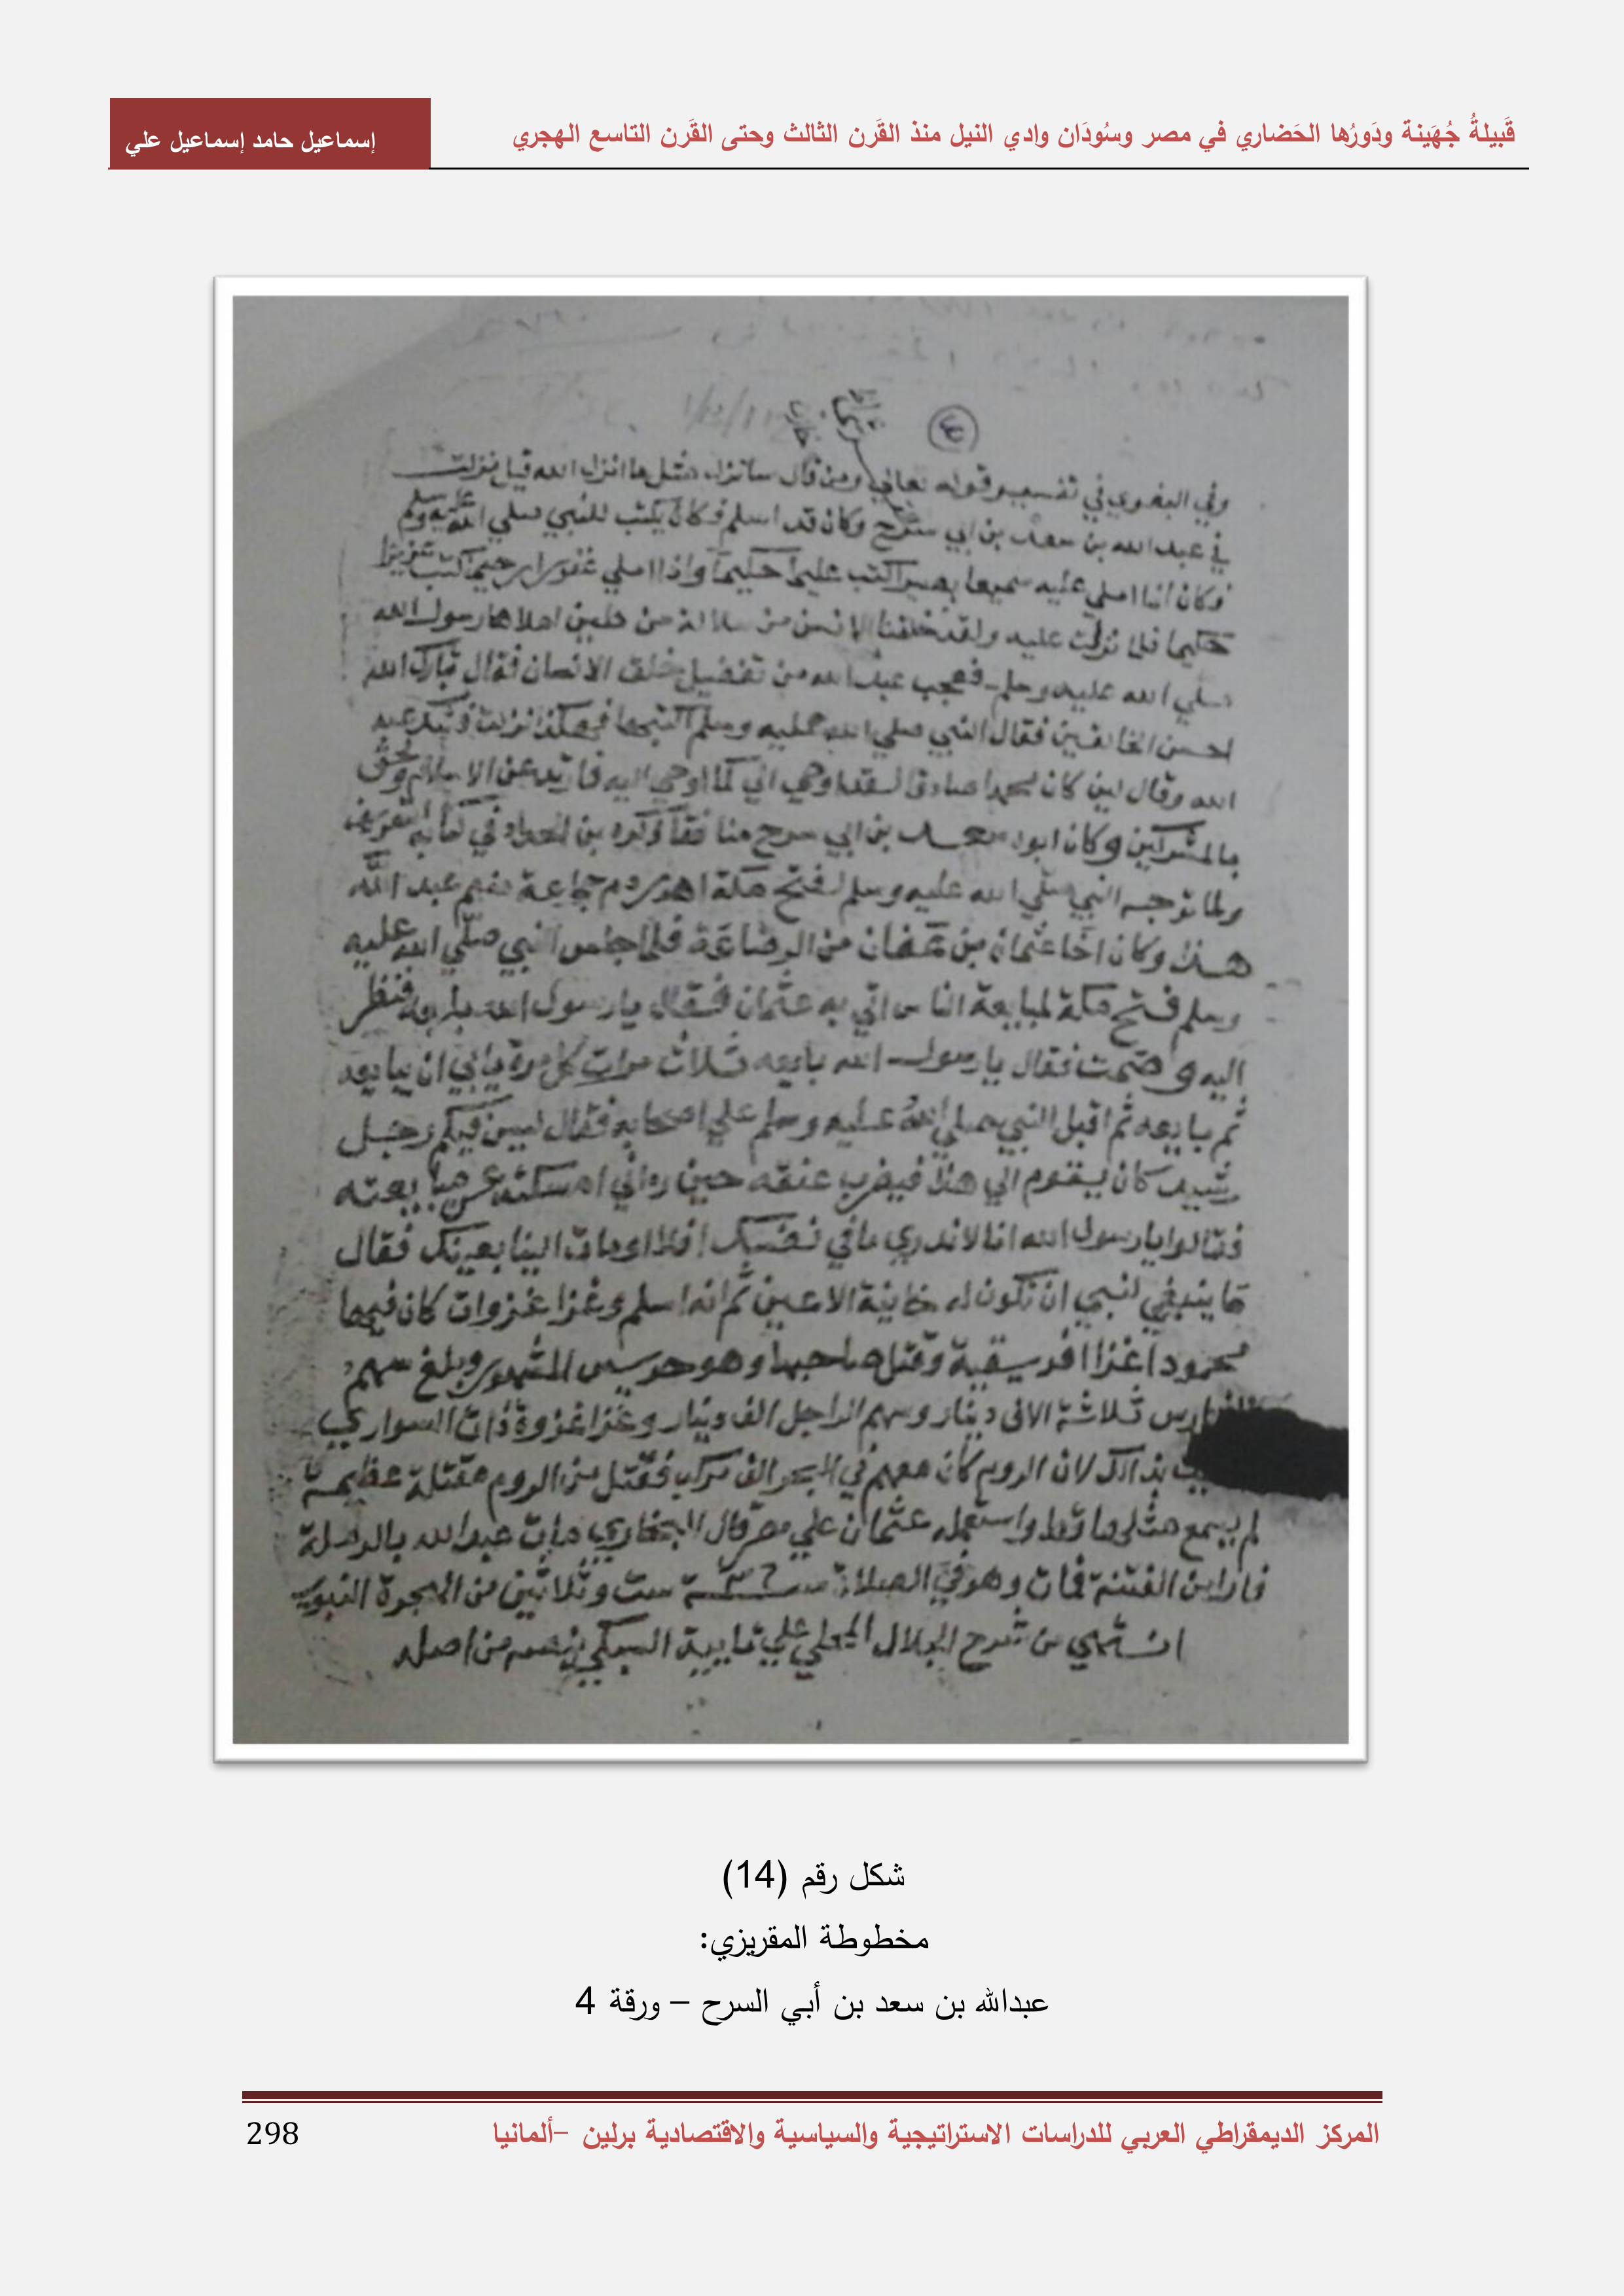 قَبيلةُ جُهَينة ودَورُها الحَضاري في مصر وسُودَان وادي النيل منذ القَرن الثالث وحتى القَرن التاسع الهجري
إسماعيل حامد إسماعيل علي
وفي البغوي في تفسير قوله تعالي ومن قال سانزل مثل ما انزل الله قيل نزلت
في عبد الله بن سعد بن ابي سرح وكان قد اسلم وكان يكتب للنبي صلي الله عليه وسلم
وكان اذا املي عليه سميعا بصيرا كتب عليما حكيما واذا املي غفورا رحيما كتب عزيزا
حكيما فلما نزلت عليه ولقد خلقنا الانسن من سلالة من طين املاها رسول الله
صلي الله عليه وسلم فعجب عبد الله من تفضيل خلق الانسان فقال تبارك الله
احسن الخالقين فقال النبي صلي الله عليه وسلم اكتبها فهكذا نزلت فشك عبد
الله وقال لين كان محمدا صادقا لقد اوحي الي كما اوحي اليه فارتد عن الاسلام ولحق
بالمشركين وكان ابوه سعد بن ابي سرح منافقا ذكره بن الحداد في كتابه التعريف
ولما توجه النبي صلي الله عليه وسلم لفتح مكة اهدر دم جماعة منهم عبد الله
هذا وكان اخا عثمان بن عفان من الرضاعة فلما جلس النبي صلي الله عليه
وسلم فتح مكة لمبايعة الناس اتي به عثمان فقال يا رسول الله بايعه فنظر
اليه وصمت فقال يا رسول الله بايعه ثلاث مرات كل مرة يابي ان يبايعه
ثم بايعه ثم اقبل النبي صلي الله عليه وسلم علي اصحابه فقال ليس فيكم رجل
رشيد كان يقوم الي هذا فيضرب عنقه حين راني امسكت عن مبايعته
فقالوا يا رسول الله انا لا ندري ما في نفسك افلا اومات الينا بعينك فقال
ما ينبغي لنبي ان تكون له خاينة الاعين ثم انه اسلم وغزا غزوات كان فيها
محمودا غزا افريقية وقتل صاحبها وهو جرسيس المشهور وبلغ سهم
الفارس ثلاثة الاف دينار وسهم الراجل الف دينار وغزا غزوة ذات السواري
بذالك لان الروم كان معهم في البحر الف مركب فقتل من الروم مقتلة عظيمة
لم يسمع مثلها قط واستعمله عثمان علي مصر قال البخاري مات عبد الله بالرملة
فارا من الفتنة فمات وهو في الصلاة سنة ٣٦ ست وثلاثين من الهجرة النبوية
انتهي من شرح الجلال المحلي علي تايية السبكي بنصه من اصله
شكل رقم (14)
مخطوطة المقريزي:
عبدالله بن سعد بن أبي السرح – ورقة 4
المركز الديمقراطي العربي للدراسات الاستراتيجية والسياسية والاقتصادية برلين –ألمانيا
298